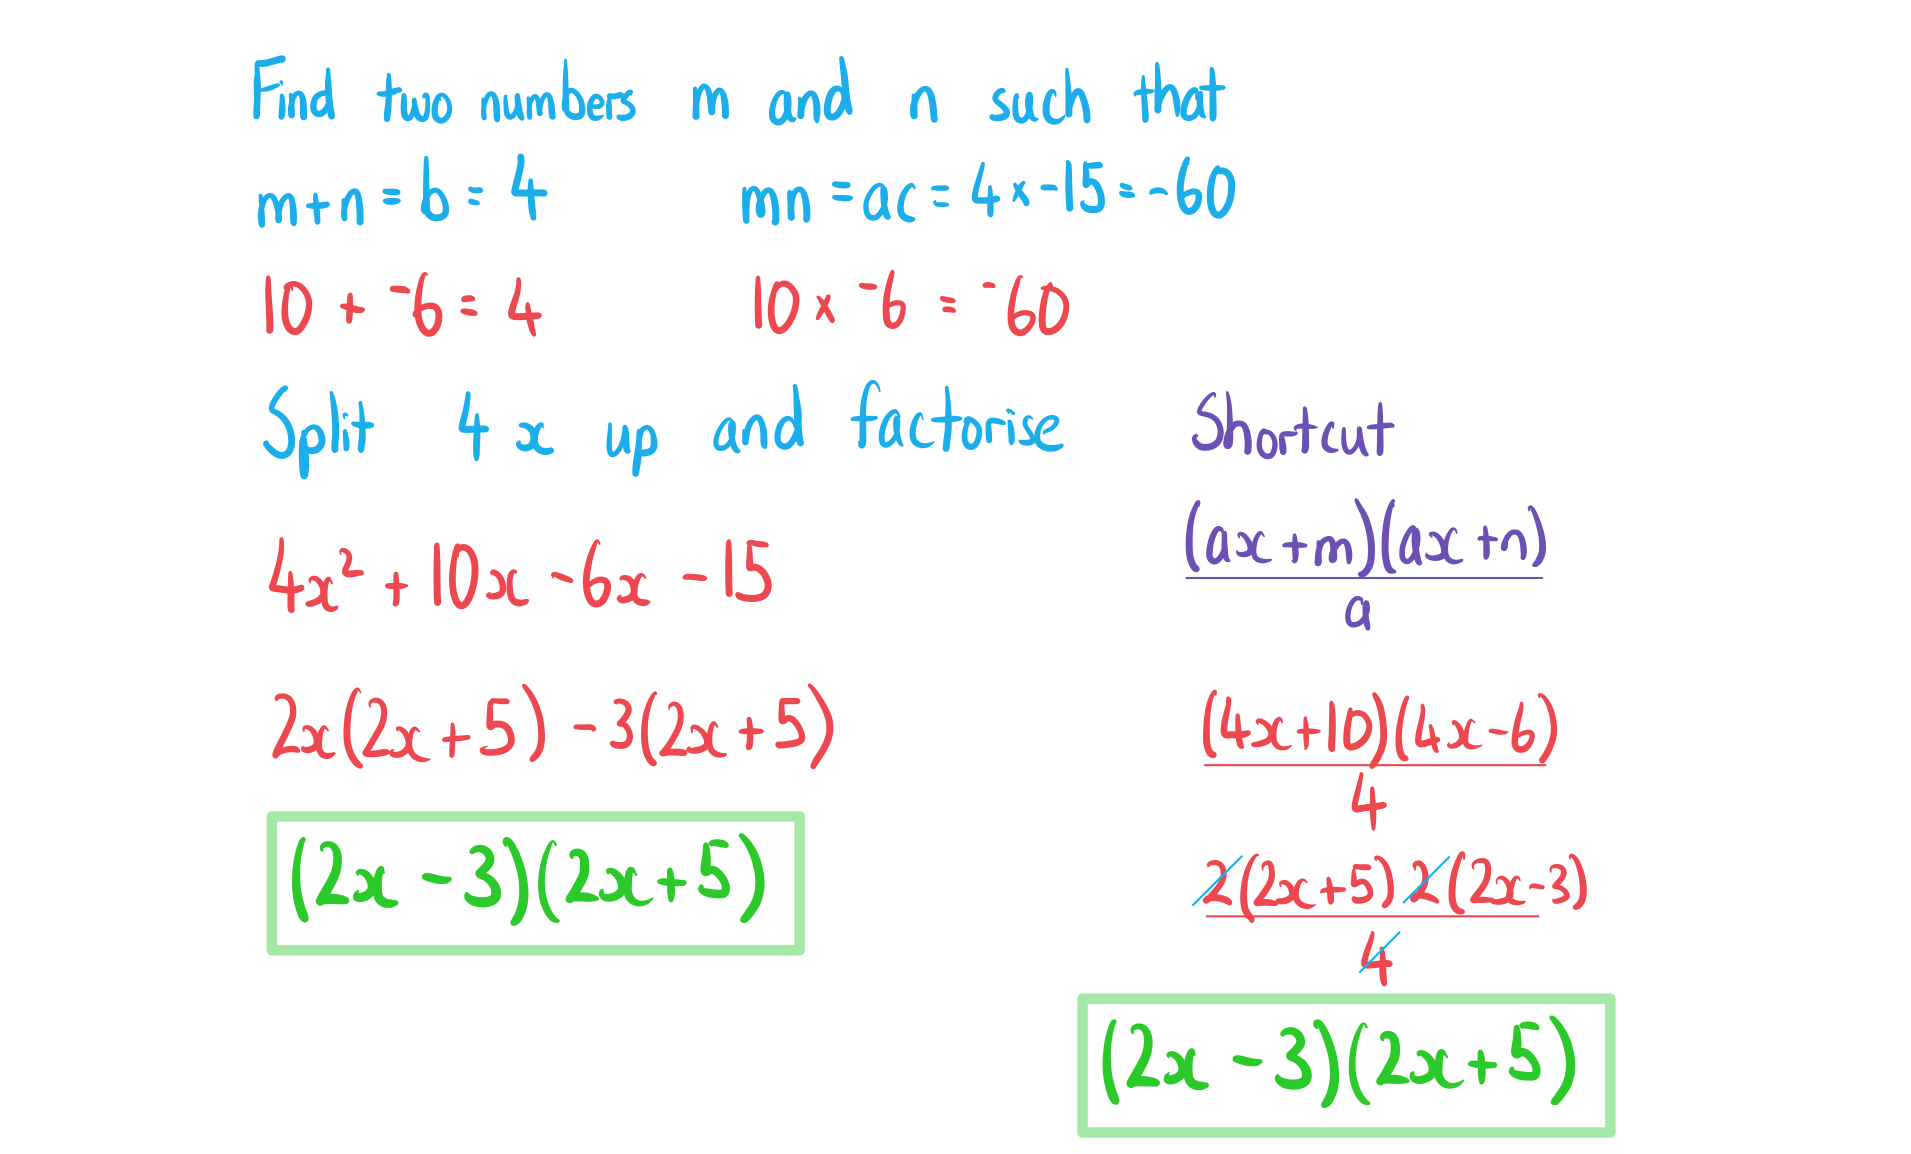 Find two numbers m and n such that
m+n = b = 4
mn = ac = 4 × -15 = -60
10 + ⁻6 = 4
10 × ⁻6 = ⁻60
Split 4x up and factorise
4x² + 10x - 6x - 15
2x(2x + 5) - 3(2x + 5)
(2x - 3)(2x + 5)
Shortcut
(ax + m)(ax + n)
a
(4x + 10)(4x - 6)
4
2(2x + 5) 2(2x - 3)
4
(2x - 3)(2x + 5)